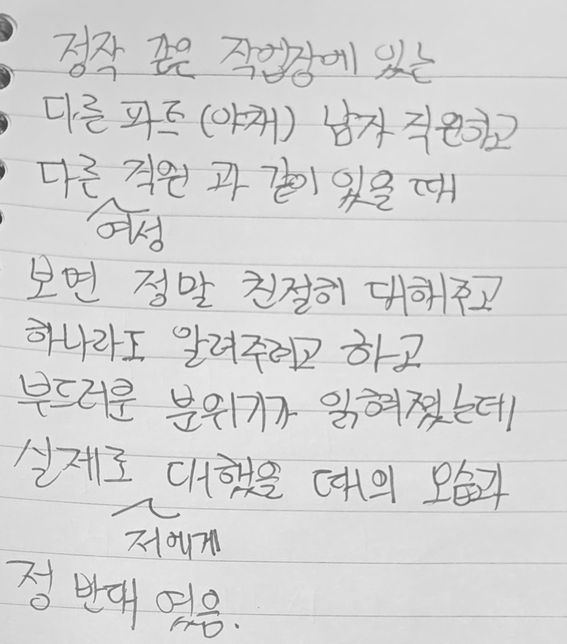 정작 같은 작업장에 있는
다른 파트(야채) 남자 직원하고
다른 직원과 같이 있을 때
여성
보면 정말 친절히 대해주고
하나라도 알려주려고 하고
부드러운 분위기가 읽혀졌는데
실제로 대했을 때의 모습과
저에게
정 반대 였음.